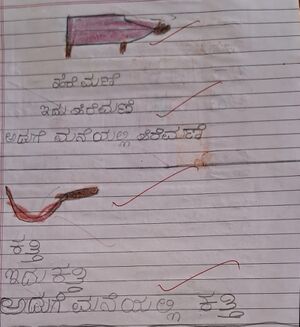 ಹೆರೆಮಣೆ
ಇದು ಹೆರೆಮಣೆ
ಅಡುಗೆ ಮನೆಯಲ್ಲಿ ಹೆರೆಮಣೆ
ಕತ್ತಿ
ಇದು ಕತ್ತಿ
ಅಡುಗೆ ಮನೆಯಲ್ಲಿ ಕತ್ತಿ